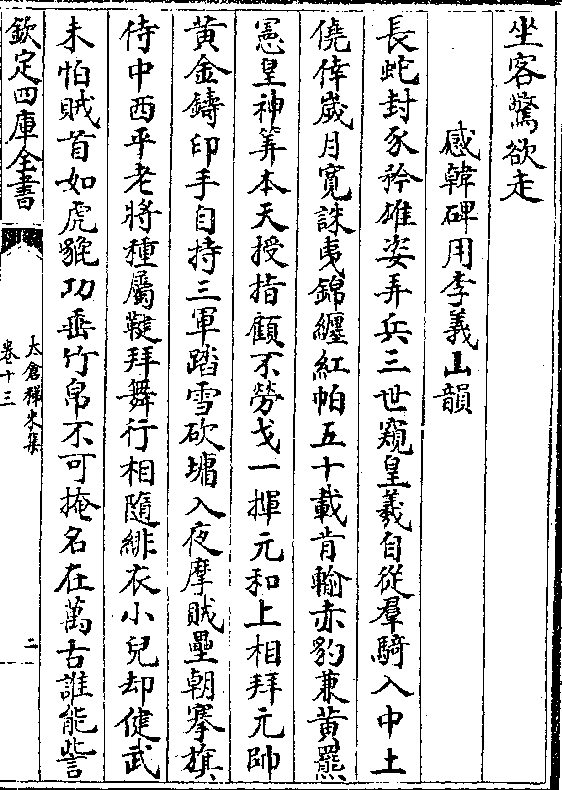 坐客驚欲走
感韓碑用李義山韻
長蛇封豕矜雄姿弄兵三世窺皇羲自從羣騎入中土
僥倖歲月寛誅夷錦纏紅帕五十載肯輸赤豹兼黄羆
憲皇神筭本天授指顧不勞戈一揮元和上相拜元帥
黄金鑄印手自持三軍踏雪砍墉入夜摩賊壘朝搴旗
侍中西平老將種屬鞬拜舞行相隨緋衣小兒却健武
未怕賊首如虎貔功垂竹帛不可掩名在萬古誰能訾
欽定四庫全書
太倉稊米集
卷十三
二